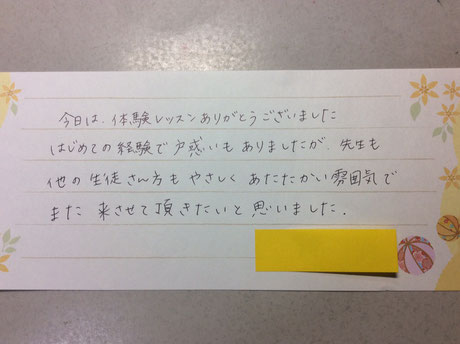 今日は、体験レッスンありがとうございました
はじめての経験で戸惑いもありましたが、先生も
他の生徒さん方もやさしくあたたかい雰囲気で
また来させて頂きたいと思いました。